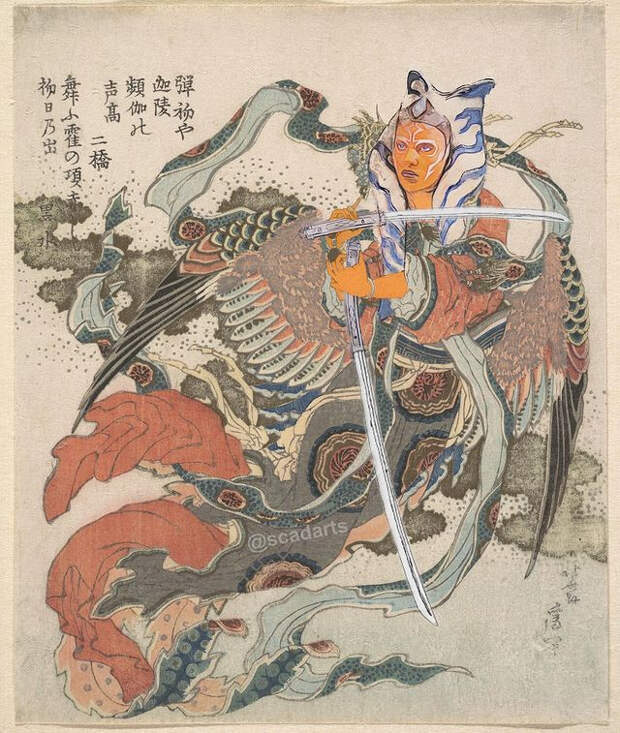 弾初や
迦陵
頻伽の
声高
二橋
舞ふ霞の項
初日乃出
黒水
@scadarts